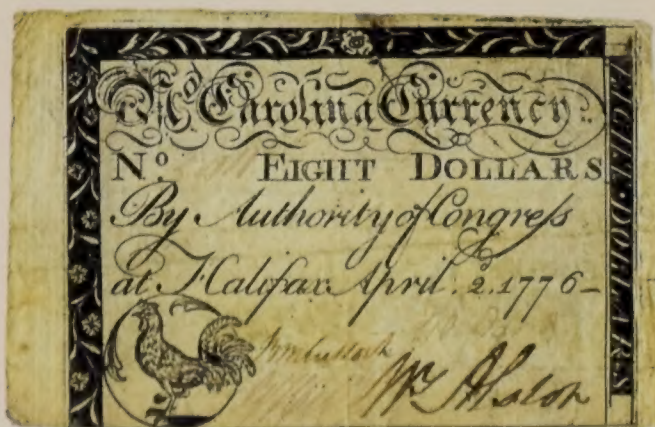 No Carolina Currency.
No. EIGHT DOLLARS
By Authority of Congreſs
at Halifax April. 2. 1776-
EIGHT DOLLARS